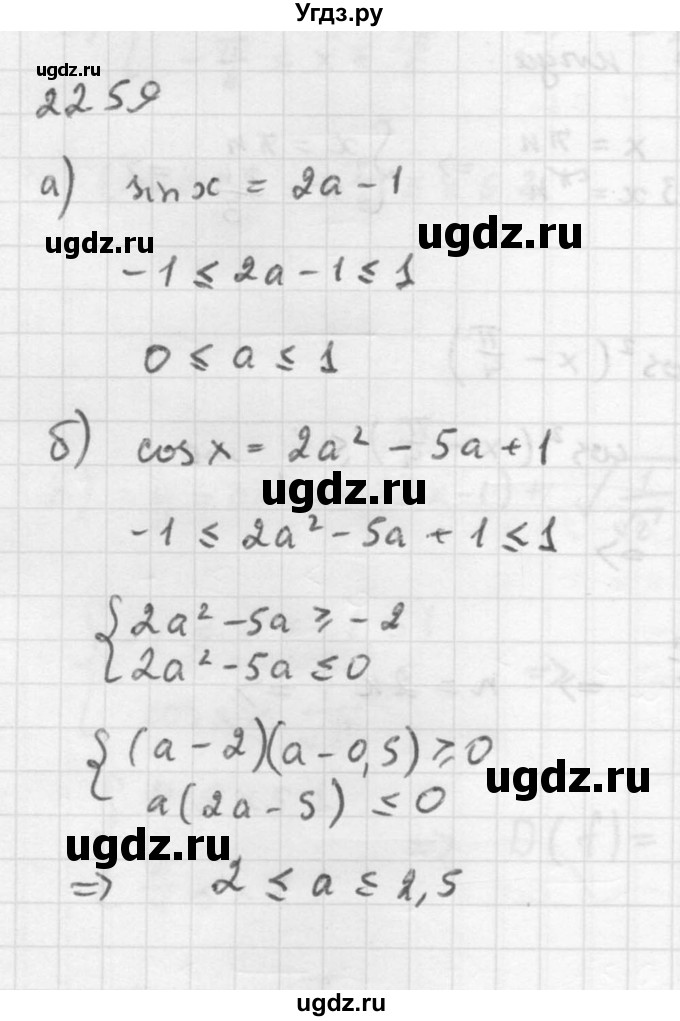 Угдз.ру
ugdz.ru
2259
а) sin x = 2a - 1
ugdz.ru
ugdz.ru
-1 ≤ 2a - 1 ≤ 1
0 ≤ a ≤ 1
б) cos x = 2a² - 5a + 1
ugdz.ru
-1 ≤ 2a² - 5a + 1 ≤ 1
{ 2a² - 5a ≥ -2
2a² - 5a ≤ 0
{ (a - 2)(a - 0,5) ≥ 0
ugdz.ru
a(2a - 5) ≤ 0
ugdz.ru
⇒ 2 ≤ a ≤ 2,5
ugdz.ru